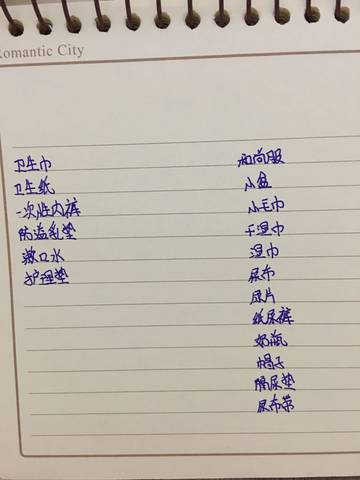 Romantic City
卫生巾
卫生纸
一次性内裤
防溢乳垫
漱口水
护理垫
和尚服
小盆
小毛巾
干湿巾
湿巾
尿布
尿片
纸尿裤
奶瓶
帽子
隔尿垫
尿布带